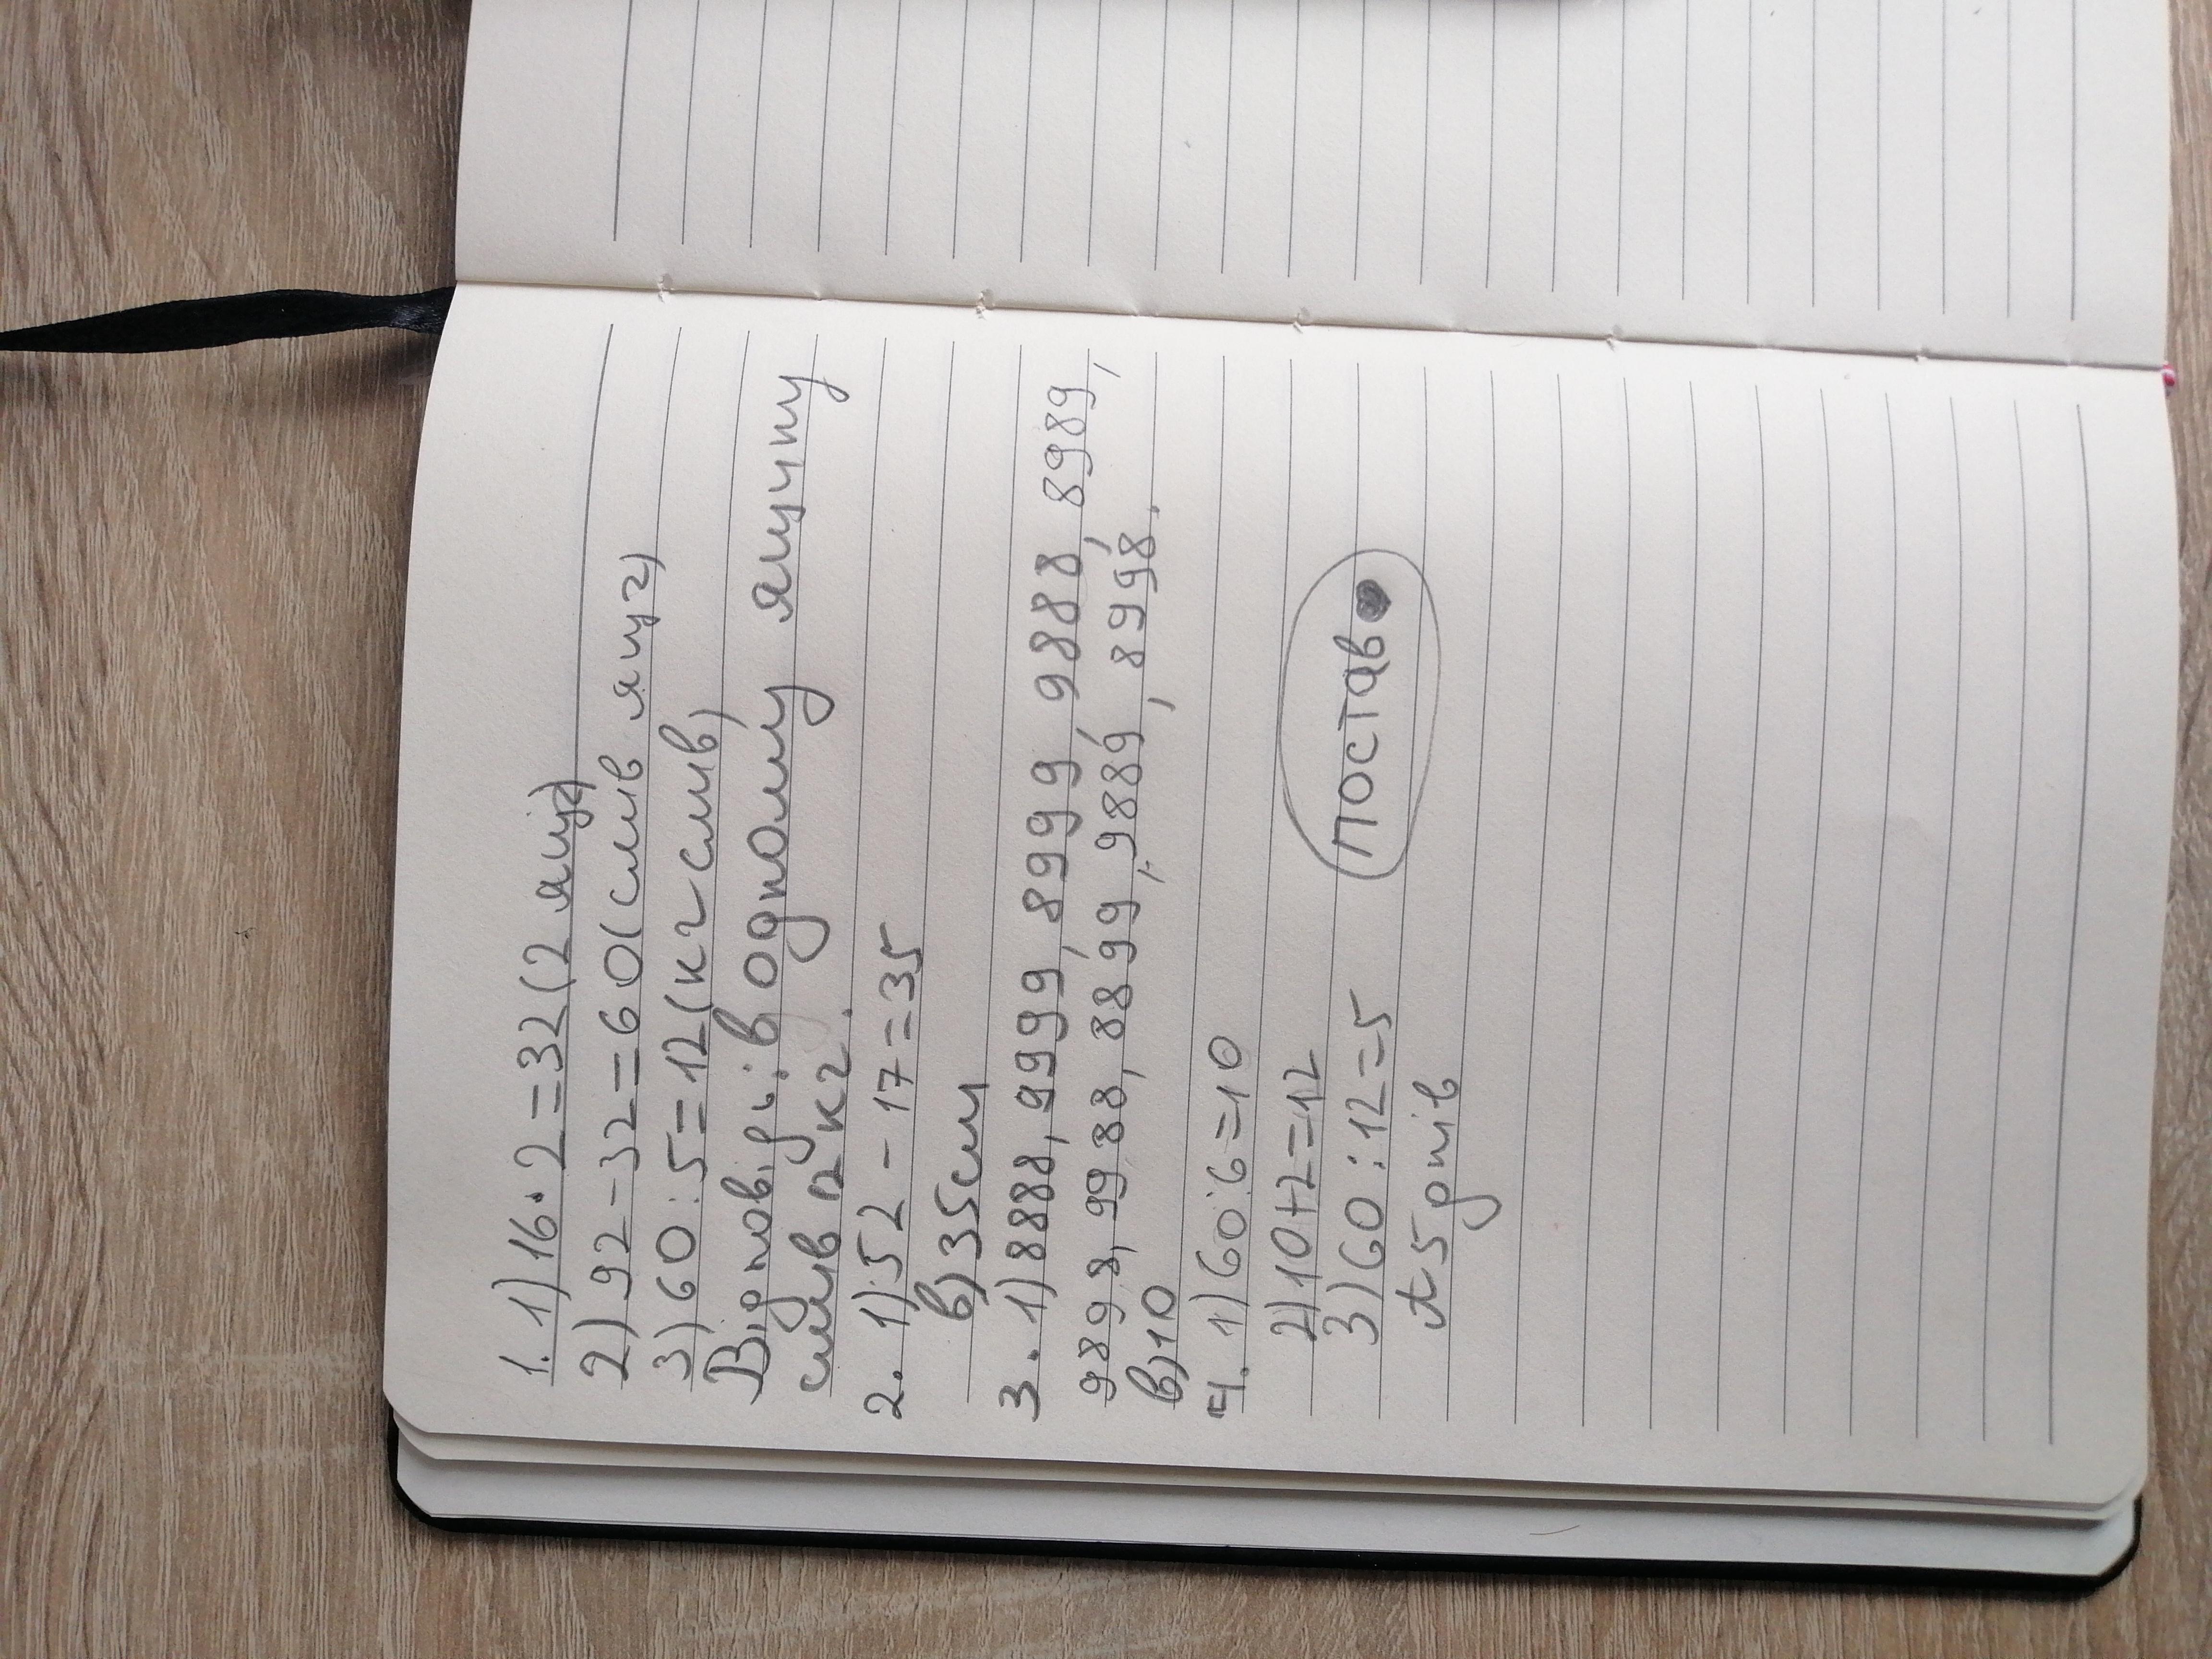 1. 1) 16·2=32(2 ящ)
2) 92-32=60(слив ящ2)
3) 60:5=12(кг слив)
Відповідь: в одному ящику
слив 12 кг.
2. 1) 52-17=35
в) 35см
3. 1) 8888, 9999, 8999, 9888, 8989,
9898, 9988, 8899, 9889, 8998.
в) 10
4. 1) 60:6=10
2) 10+2=12
3) 60:12=5
5 днів
ПОСТАВ ❤